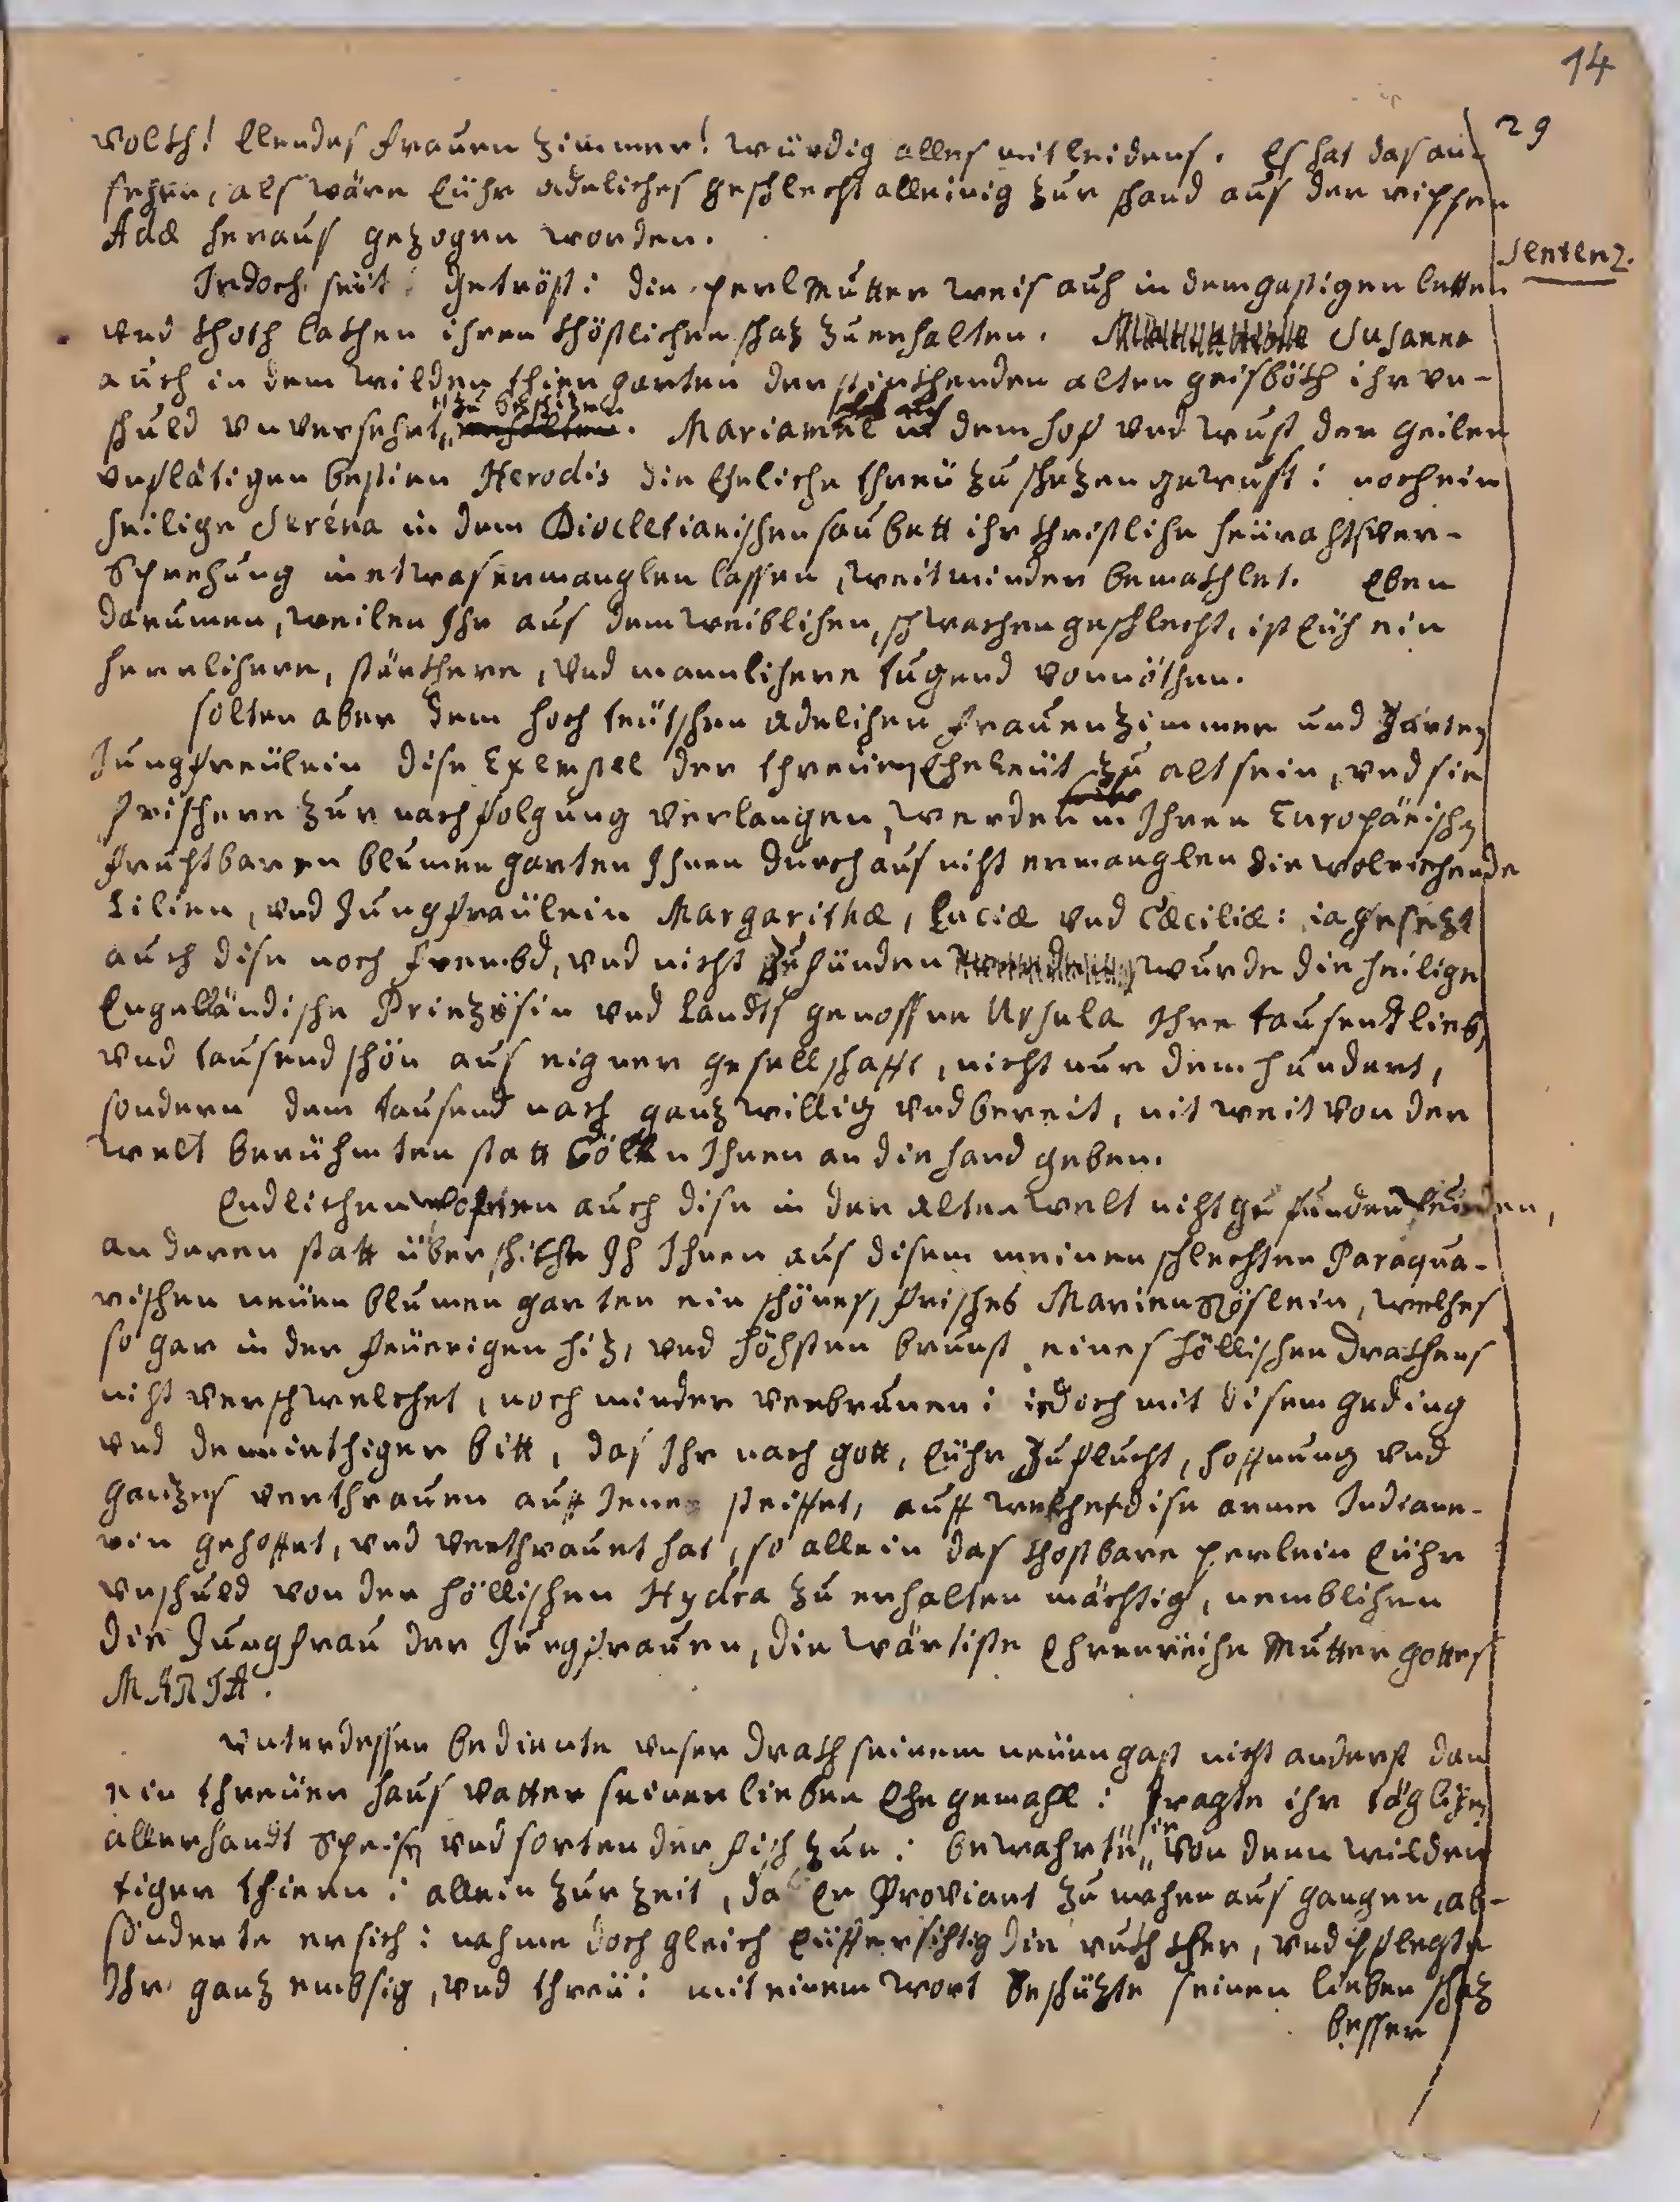 14
29
volkh! Ellendes frauen zimmer! würdig alles mitleidens. Es hat das an-
sehen, als wäre Eühr adeliches geschlecht alleinig zur schand aus der rippen
Adæ heraus gezogen worden.
Sentenz.
Jedoch seit getröst: die perlmutter weis auch in dem gastigen letten
und khoth lakhen ihren khöstlichen schaz zu erhalten. Susanna
auch in dem wilden thiergarten der stinkhenden alten geisböckh ihr un-
schuld unversehrt zu beschizen. Mariamne in dem hoff und wust der geilen
unflätigen bestien Herodis die Eheliche threü zu schezen gewust: noch ein
heilige Serena in dem Diocletianischen saubett ihr christliche heürahtsver-
sprechung in etwas ermanglen lassen, weit minder bemakhlet. Eben
darumen, weilen Ihr aus dem weiblichen, schwachen geschlecht, ist Eüch ein
herrlichere, stärkhere, und mannlichere tugend vonnöthen.
Solten aber dem hoch teütschen adelichen frauenzimmer und zarten
Jungfreülein dise Exempel der threuen Eheleüt zu alt sein, und sie
frischere zur nachfolgung verlangen, werden in Ihren Europäischen
fruchtbaren blumen garten Ihnen durch aus nicht ermanglen die wolriechende
Lilien, und Jungfraülein Margarithæ, Luciæ und Cæciliæ: ia gesezt
auch dise noch frembd, und nicht zufünden wurde die heilige
Engelländische Prinzösin und Landts genossen Ursula Ihre tausendt lieb,
und tausend schön aus eigner gesellschafft, nicht nur dem hundert,
sondern dem tausend nach ganz willig und bereit, nit weit von der
welt berühmten statt Cölln Ihnen an die hand geben.
Endlichen auch dise in der alten welt nicht zu funden
an deren statt überschikhe Ich Ihnen aus disem meinen schlechten Paraqua-
rischen neüen blumen garten ein schönes, frisches Marien Röslein, welches
so gar in der feüerigen hiz, und höchsten brunst eines höllischen drakhens
nicht verschwelchet, noch minder verbrunen: iedoch mit disem geding
und demiethiger bitt, das Ihr nach gott, Eühr Zuflucht, hoffnung und
ganzes verthrauen auff Jene steiffet, auff welche dise arme Indiane-
rin gehoffet, und verthrauet hat, so allein das khostbare perlein Eühr
unschuld von der höllischen Hydra zu erhalten mächtig, nemblichen
die Jungfrau der Jungfrauen, die wärtiste Ehrenreiche Mutter gottes
MARIA.
Unterdessen bediente unser drakh seinem neüen gast nicht anderst dan
ein threüer haus vatter seiner lieben Ehe gemahl: tragte ihr täglichen
allerhandt speisen und sorten der fisch zue: bewahrte sie von denn wilden
tiger thieren: allein zur zeit, da Er Proviant zu machen aus gangen, ab-
sonderte er sich: nahme doch gleich Eüffersichtig die rukh kher, und pflegte
Ihr ganz embsig, und threü: mit einem wort beschüzte seinen lieben schaz
besser